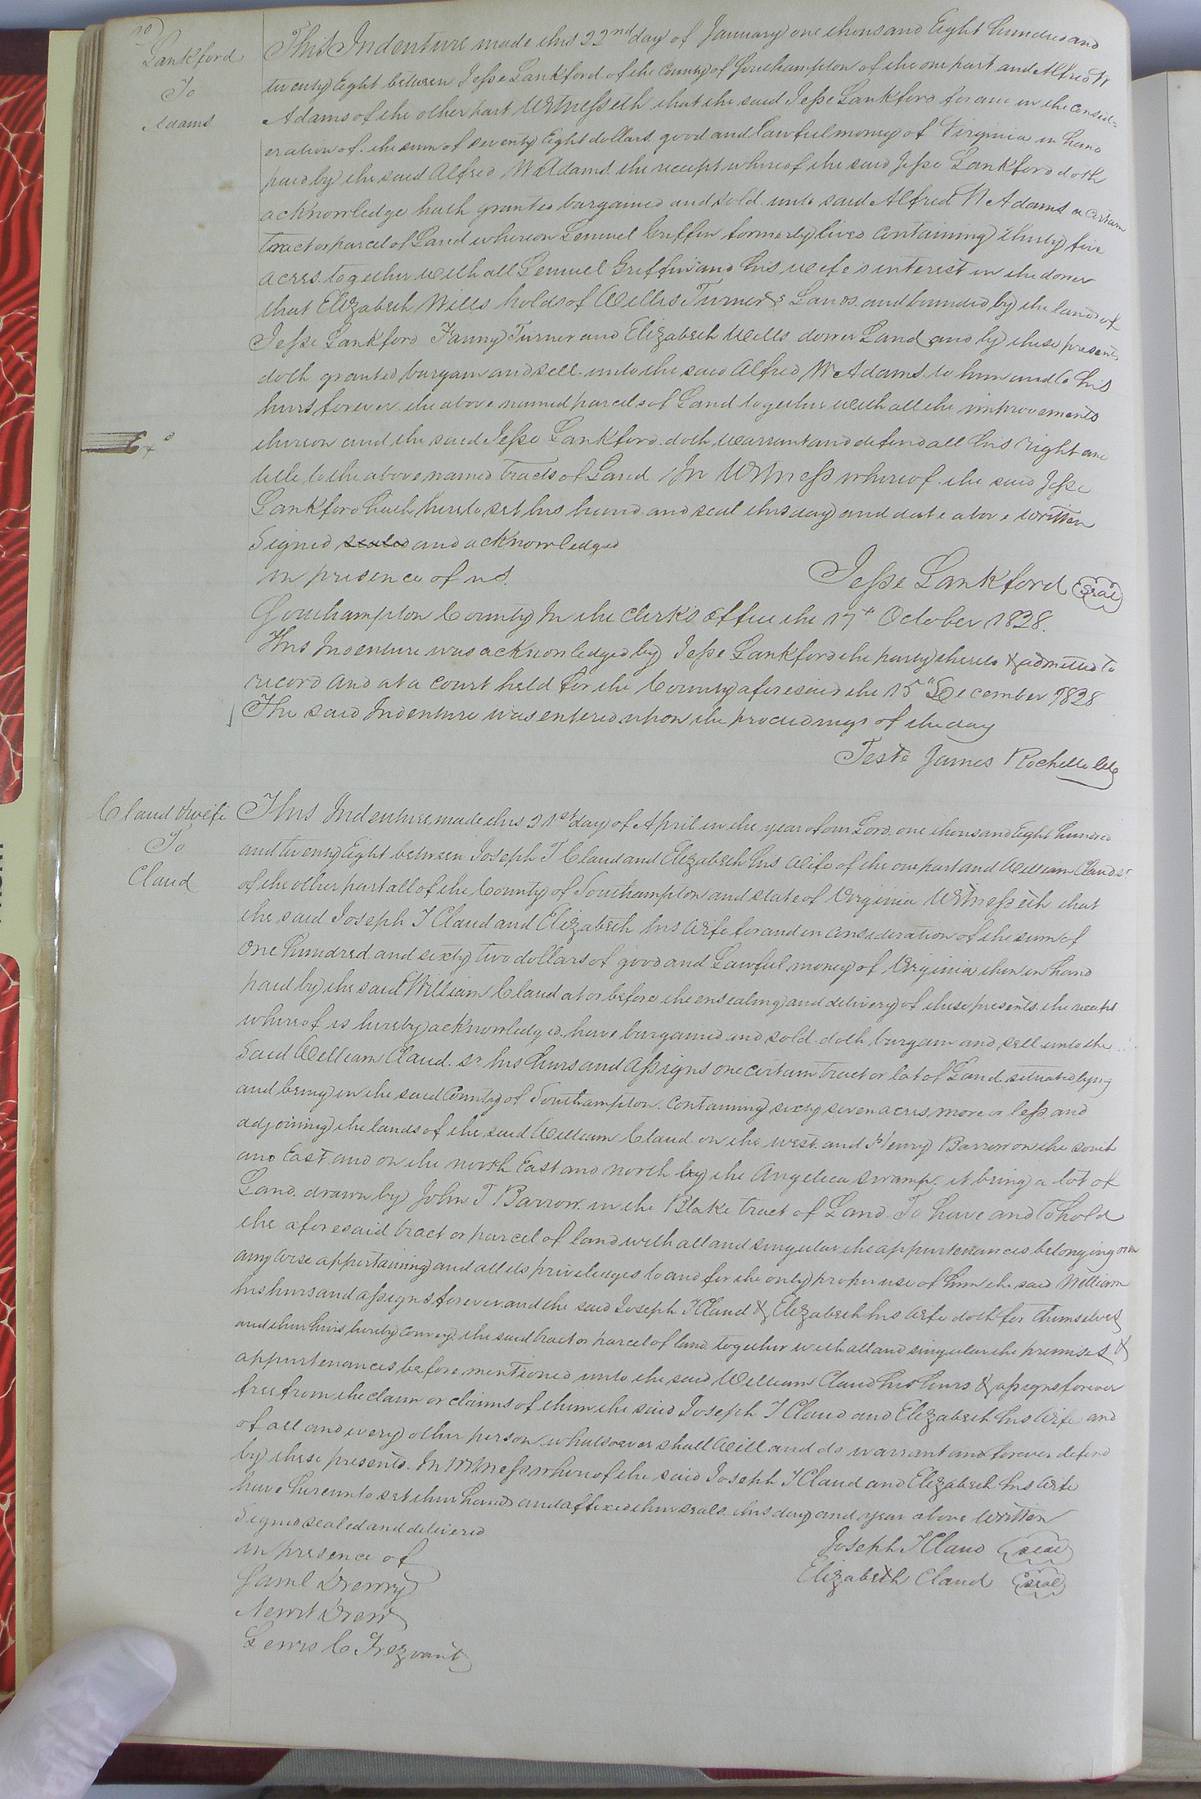 Lankford
To
Adams
This Indenture made this 22nd day of January one thousand Eight hundred and
twenty Eight between Jesse Lankford of the County of Southampton of the one part and Alfred W
Adams of the other part Witnesseth that the said Jesse Lankford for and in the consid=
eration of the sum of seventy Eight dollars good and lawful money of Virginia in hand
paid by the said Alfred W Adams the receipt whereof the said Jesse Lankford doth
acknowledge hath granted bargained and sold unto said Alfred W Adams a certain
tract or parcel of Land whereon Lemuel Griffin formerly lived containing thirty five
acres together with all Lemuel Griffin and his wife's interest in the dower
that Elizabeth Wills holds of Willis Turner's Lands and bounded by the land of
Jesse Lankford Fanny Turner and Elizabeth Wells dower Land and by these presents
doth granted bargain and sell unto the said Alfred W Adams to him and to his
heirs forever the above named parcels of Land together with all the improvements
thereon and the said Jesse Lankford doth warrant and defend all his right and
title to the above named tracts of Land In Witness whereof the said Jesse
Lankford hath hereto set his hand and seal this day and date above written
Signed sealed and acknowledged
in presence of us.
Jesse Lankford (seal)
Southampton County In the Clerk's office the 17th October 1828.
This Indenture was acknowledged by Jesse Lankford the party thereto & admitted to
record And at a court held for the County aforesaid the 15th December 1828
The said Indenture was entered upon the proceedings of the day
Teste James Rochelle Clk
Claud & wife
To
Claud
This Indenture made this 21st day of April in the year of our Lord one thousand Eight hundred
and twenty Eight between Joseph T Claud and Elizabeth his wife of the one part and William Claud Sr
of the other part all of the County of Southampton and state of Virginia Witnesseth that
the said Joseph T Claud and Elizabeth his wife for and in consideration of the sum of
One hundred and sixty two dollars of good and Lawful money of Virginia then in hand
paid by the said William Claud at or before the ensealing and delivery of these presents the receipt
whereof is hereby acknowledged have bargained and sold doth bargain and sell unto the
said William Claud Sr his heirs and assigns one certain tract or lot of Land situated lying
and being in the said County of Southampton containing sixty seven acres more or less and
adjoining the lands of the said William Claud on the west and Henry Barrow on the south
and East and on the north East and north by the Angelica swamp it being a lot of
Land drawn by John T Barrow in the Blake tract of Land To have and to hold
the aforesaid tract or parcel of land with all and singular the appurtenances belonging or in
any wise appertaining and all its priviledges to and for the only proper use of him the said William
his heirs and assigns forever and the said Joseph T Claud & Elizabeth his wife doth for themselves
and their heirs hereby convey the said tract or parcel of land together with all and singular the premises &
appurtenances before mentioned unto the said William Claud his heirs & assigns forever
free from the claim or claims of them the said Joseph T Claud and Elizabeth his wife and
of all and every other person whatsoever shall will and do warrant and forever defend
by these presents. In Witness whereof the said Joseph T Claud and Elizabeth his wife
have hereunto set their hands and affixed their seals this day and year above written
Signed sealed and delivered
in presence of
Joseph T Claud (seal)
Elizabeth Claud (seal)
Saml Drewry
Newit Drew
Lewis C Trezvant